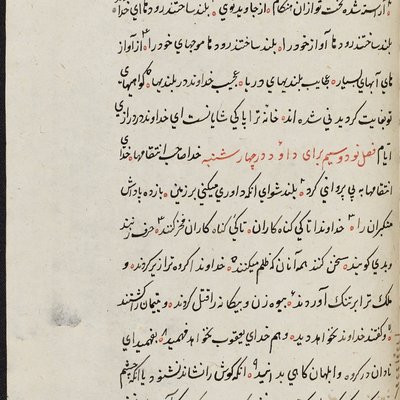 آراسته شده تخت تو از آن هنگام از جاوید توی بلند ساختند رودهای خدا
بلند ساختند رودها آواز خود را بلند ساختند رودها موجهای خود را از آواز
های آبهای بسیار عجایب بلندیهای دریا عجیب خداوند در بلندیها گواهیهای
تو بغایت کردیدنی شده اند خانه ترا پاکی شایانست ای خداوند در درازی
ایام فصل نود و سیم برای داود در چهار شنبه خدا صاحب انتقامها خدای
انتقامها به بی پروای کرد بلند شو ای آنکه داوری میکنی بر زمین باز ده پاداش
منکبران را خداوندا تا کی گناه کاران تا کی گناه کاران فخر کنند حرف زنند
و بدی گویند سخن کنند همه آنان که ظلم میکنند خداوندا گروه ترا زیر کردند و
ملک ترا بر تنگ آوردند بیوه زن و بیگانه را قتل کردند و یتیمان را کشتند
و گفتند خداوند نخواهد دید و هم خدای یعقوب نخواهد فهمید بفهمید ای
نادان در گروه و ابلهان گاهی بدانید آنکه گوش را نشاند نشنود یا آنکه چشم